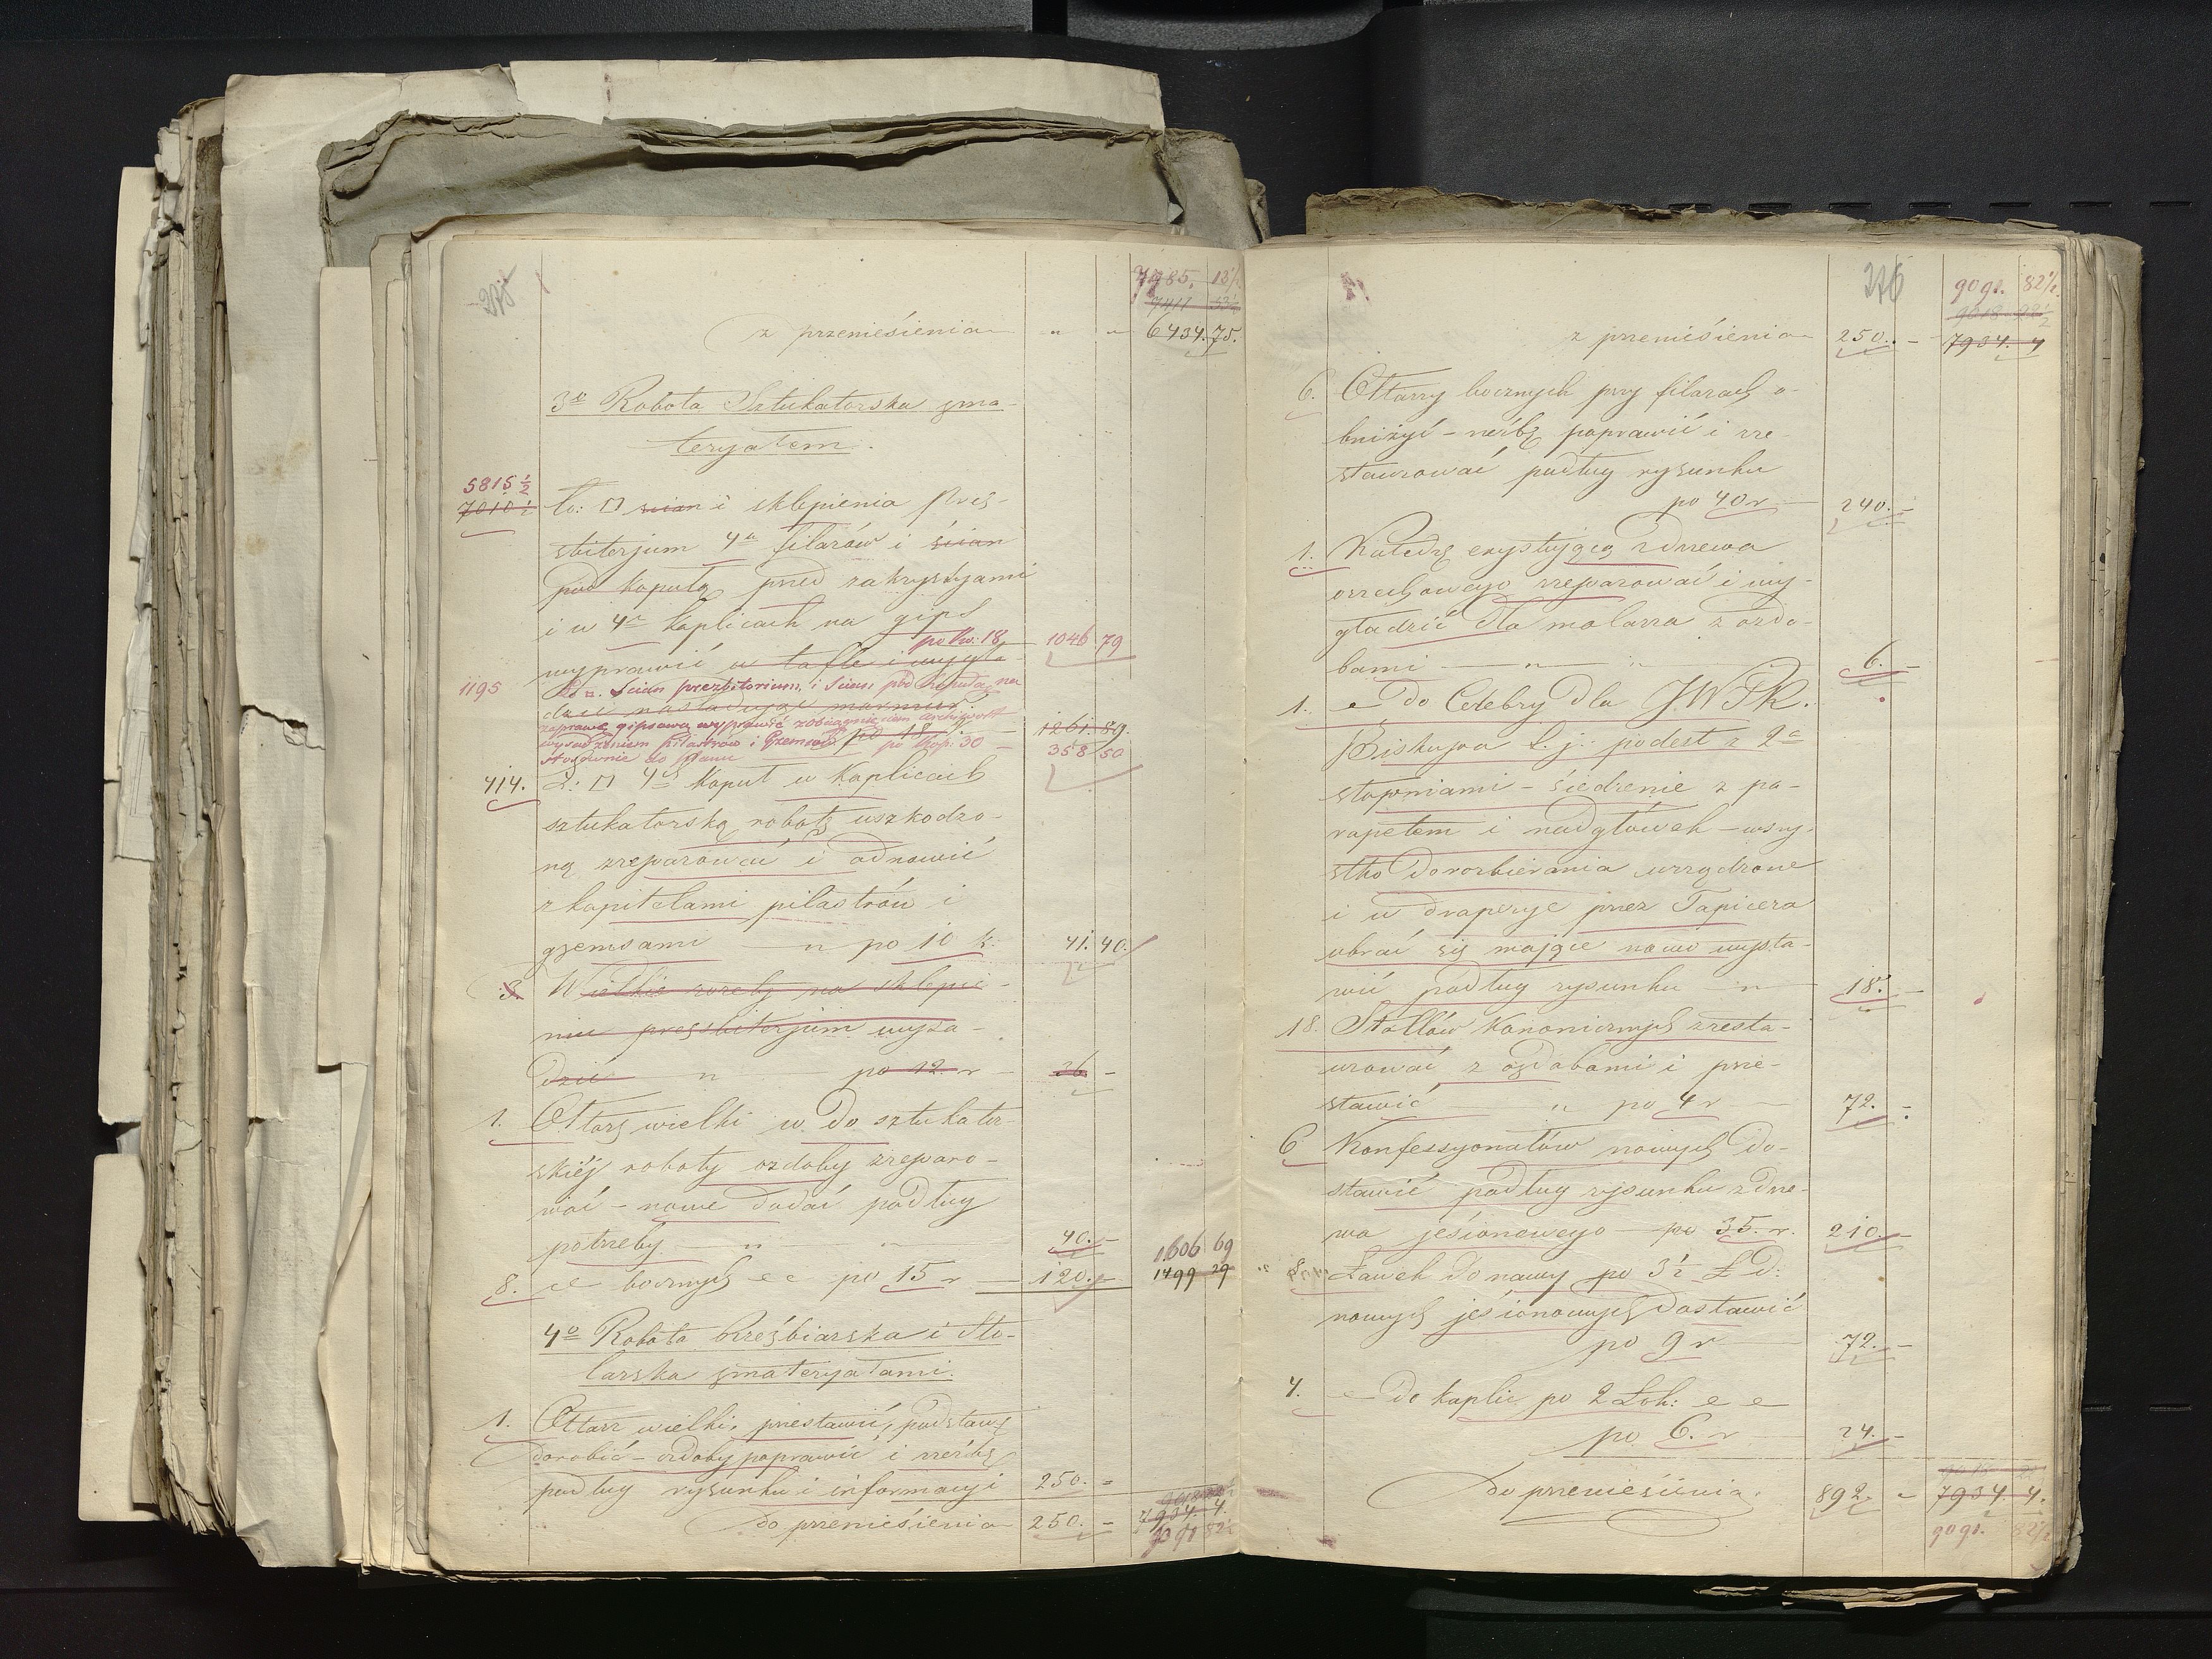 7985. 13½
7411 53½
z przeniesienia „ „ 6434. 75.
3o Robota Sztukatorska z ma-
teryałem.
5815 ½
7010 ½ Ło: □ ścian i sklepienia Prez-
biterjum 4ch filarów i ścian
pod kopułą przed zakrystyjami
i w 4ch kaplicach na gips
po ko: 18 1046 79
wyprawić w tafle i wygła-
1195 Ł □. Ścian prezbitorium, i Ścian pod kopułą na
dzić naśladując marmur
zaprawę gipsową wyprawić
po 18 1261. 89.
wysadzeniem pilastrów i Gzemsów po kop: 30 358 50
stosownie do planu
414. Ł: □ 4ch kopuł w Kaplicach
sztukatorską robotę uszkodzo-
ną zreparować i odnowić
z kapitelami pilastrów i
gzemsami — „ po 10 k: 41. 40.
3. Wielkie rozety na sklepie-
niu prezbiterjum wysa-
dzić „ po 12 r 36 -
1. Ołtarz wielki w do sztukator-
skiéj roboty ozdoby zreparo-
wać - nowe dodać podług
potrzeby — „ „ 40. -
1606 69
8. e bocznych e e po 15 r — 120. - 1499 29
4o Robota Rzeźbiarska i Sto-
larska z materyałami.
1. Ołtarz wielki, przestawić, podstawę
dorobić - ozdoby poprawić i rzeźbę
podług rysunku i informacyi 250. =
do przeniesienia 250. - 7934. 4.
9091 82½
276 9091. 82½
z przeniesienia 250. - 7934. 4
6. Ołtarzy bocznych przy filarach o-
bniżyć - rzeźbę poprawić i zre-
staurować podług rysunku
po 40 r — 240. -
1. Katedrę exystującą z drzewa
orzechowego zreparować i wy-
gładzić dla malarza z ozdo-
bami — „ — „ 6. -
1. e do Celebry dla JWJK.
Biskupa t. j. podest z 2a
stopniami - siedzenie z pa-
rapetem i nadgłówek - wszy-
stko do rozbierania urządzone
i w draperyje przez Tapicera
ubrać się mające nowo wysta-
wić podług rysunku — „ — 18. -
18. Stallów Kanonicznych zresta-
urować z ozdobami i prze-
stawić — „ po 4 r — 72. -
6 Konfessyonałów nowych do-
stawić podług rysunku z drze-
wa jesionowego — po 35. r. 210. -
8. Ławek do nawy po 3½ Ł D:
nowych jesionowych dostawić
po 9 r — 72. -
4. e do kaplic po 2 Łok: e e
po 6. r — 24. -
do przeniesienia. 892. - 7934. 4.
9091. 82½